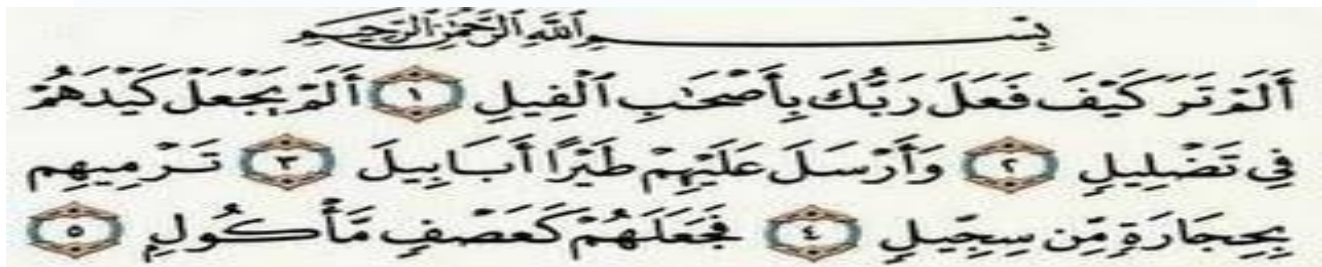 بِسْمِ اللَّهِ الرَّحْمَٰنِ الرَّحِيمِ
أَلَمْ تَرَ كَيْفَ فَعَلَ رَبُّكَ بِأَصْحَٰبِ ٱلْفِيلِ ١ أَلَمْ يَجْعَلْ كَيْدَهُمْ
فِى تَضْلِيلٍ ٢ وَأَرْسَلَ عَلَيْهِمْ طَيْرًا أَبَابِيلَ ٣ تَرْمِيهِم
بِحِجَارَةٍ مِّن سِجِّيلٍ ٤ فَجَعَلَهُمْ كَعَصْفٍ مَّأْكُولٍ ٥